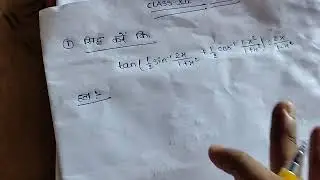 CLASS XII
① सिद्ध करें कि
tan(½ sin⁻¹ 2x/1+x² + ½ cos⁻¹ 1-x²/1+x²) = 2x/1-x²
हल :-